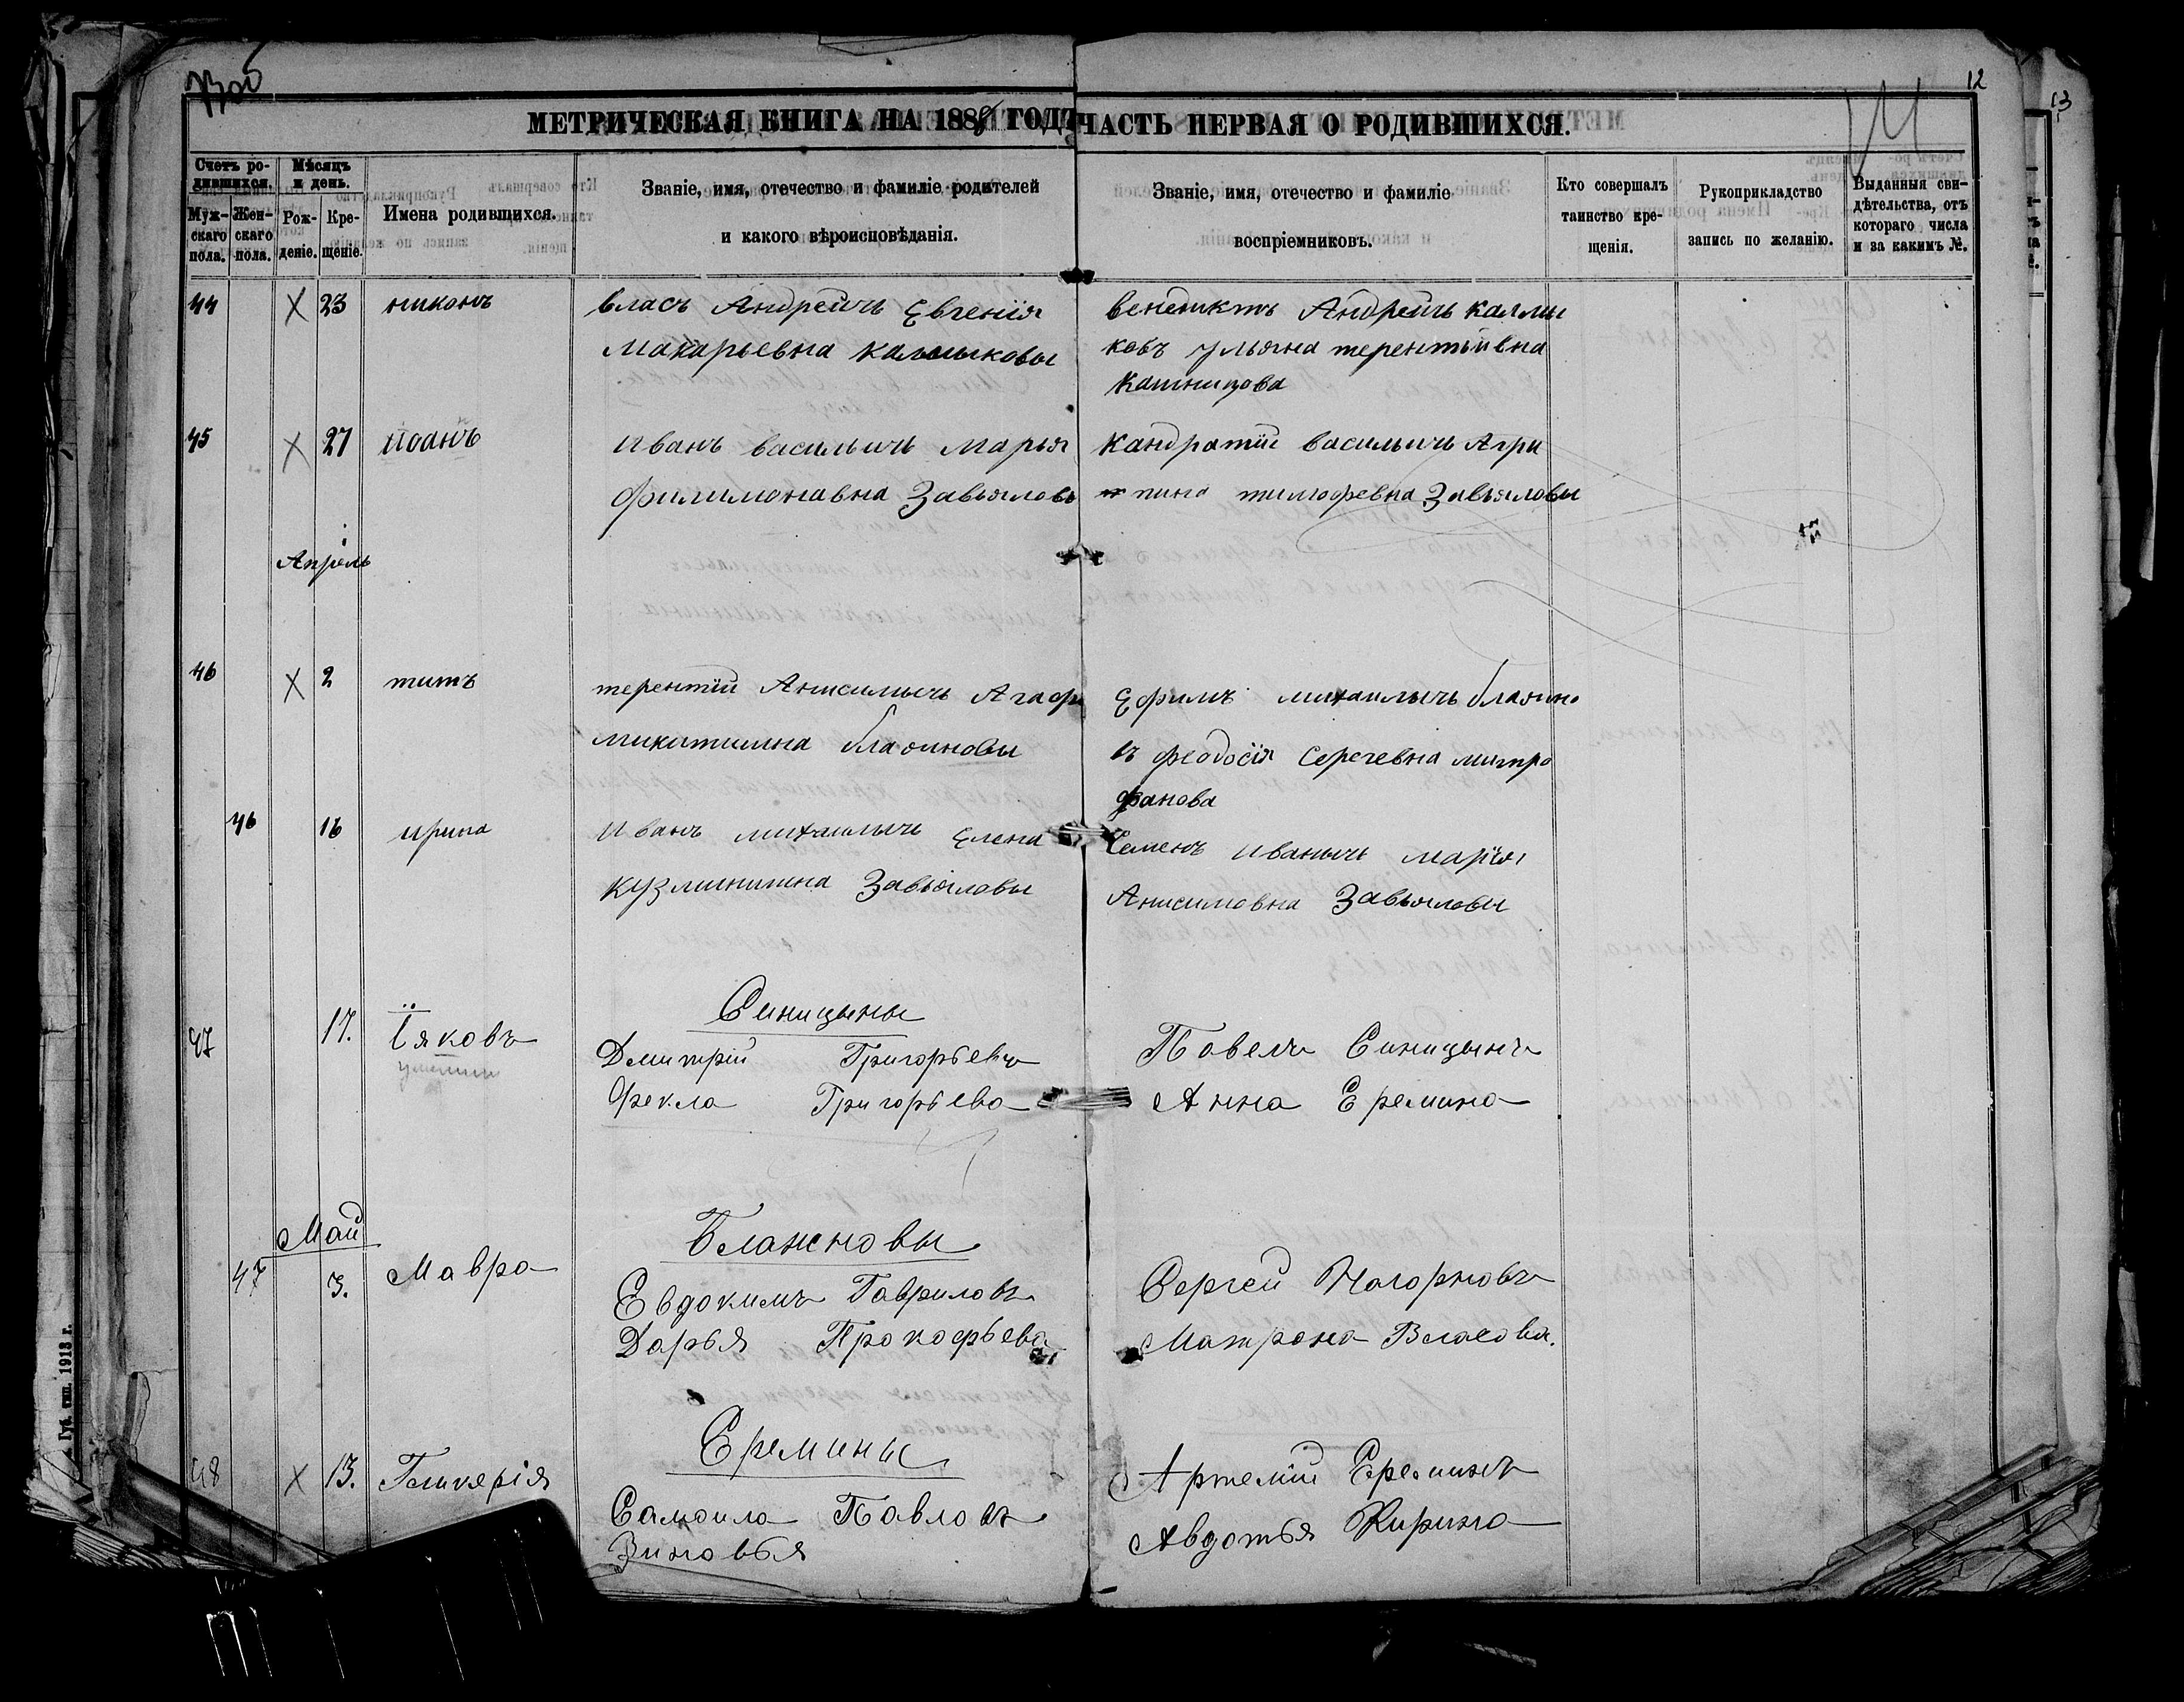 12
13
МЕТРИЧЕСКАЯ КНИГА НА 188 ГОДЪ ЧАСТЬ ПЕРВАЯ О РОДИВШИХСЯ.
Счетъ ро-
дившихся.
Муж-
скаго
пола.
Жен-
скаго
пола.
Мѣсяцъ
и день.
Рож-
деніе.
Кре-
щеніе.
Имена родившихся.
Званіе, имя, отечество и фамиліе родителей
и какого вѣроисповѣданія.
Званіе, имя, отечество и фамиліе
воспріемниковъ.
Кто совершалъ
таинство кре-
щенія.
Рукоприкладство
запись по желанію.
Выданныя сви-
дѣтельства, отъ
котораго числа
и за какимъ №.
44 X 23 никонъ
власъ Андреичь Евгенія
Макарьевна калмыковы
венедиктъ Андреичь калмы
ковъ ульяна терентьивна
45 X 27 иоанъ
иванъ василичь Марья
филимонавна Завьяловы
кандратій василичь Агри
пина тимофевна Завьяловы
Апрель
46 X 2 титъ
терентій Анисимычь Агафя
микитишна блажновы
Ефимъ михаилычь блажно
въ феодосія Серегевна митро
фанова
46 16 ирина
иванъ михаилычь Елена
кузминишна Завьяловы
Семенъ иванычь марія
Анисимовна Завьяловы
47 17. Іяковъ
Синицыны
Димитрій Григорьевъ
Фекла Григорьева
Павелъ Синицынъ
Анна Еремина
Май
47 3. Мавра
Блажновы
Евдокимъ Гавриловъ
Дарья Прокофьева
Сергей Нагорновъ
Матрона Власова.
48 X 13. Гликерія
Еремины
Самоила Павловъ
Зиновья
Артемій Ереминъ
Авдотья Кирина
Губ. тип. 1913 г.